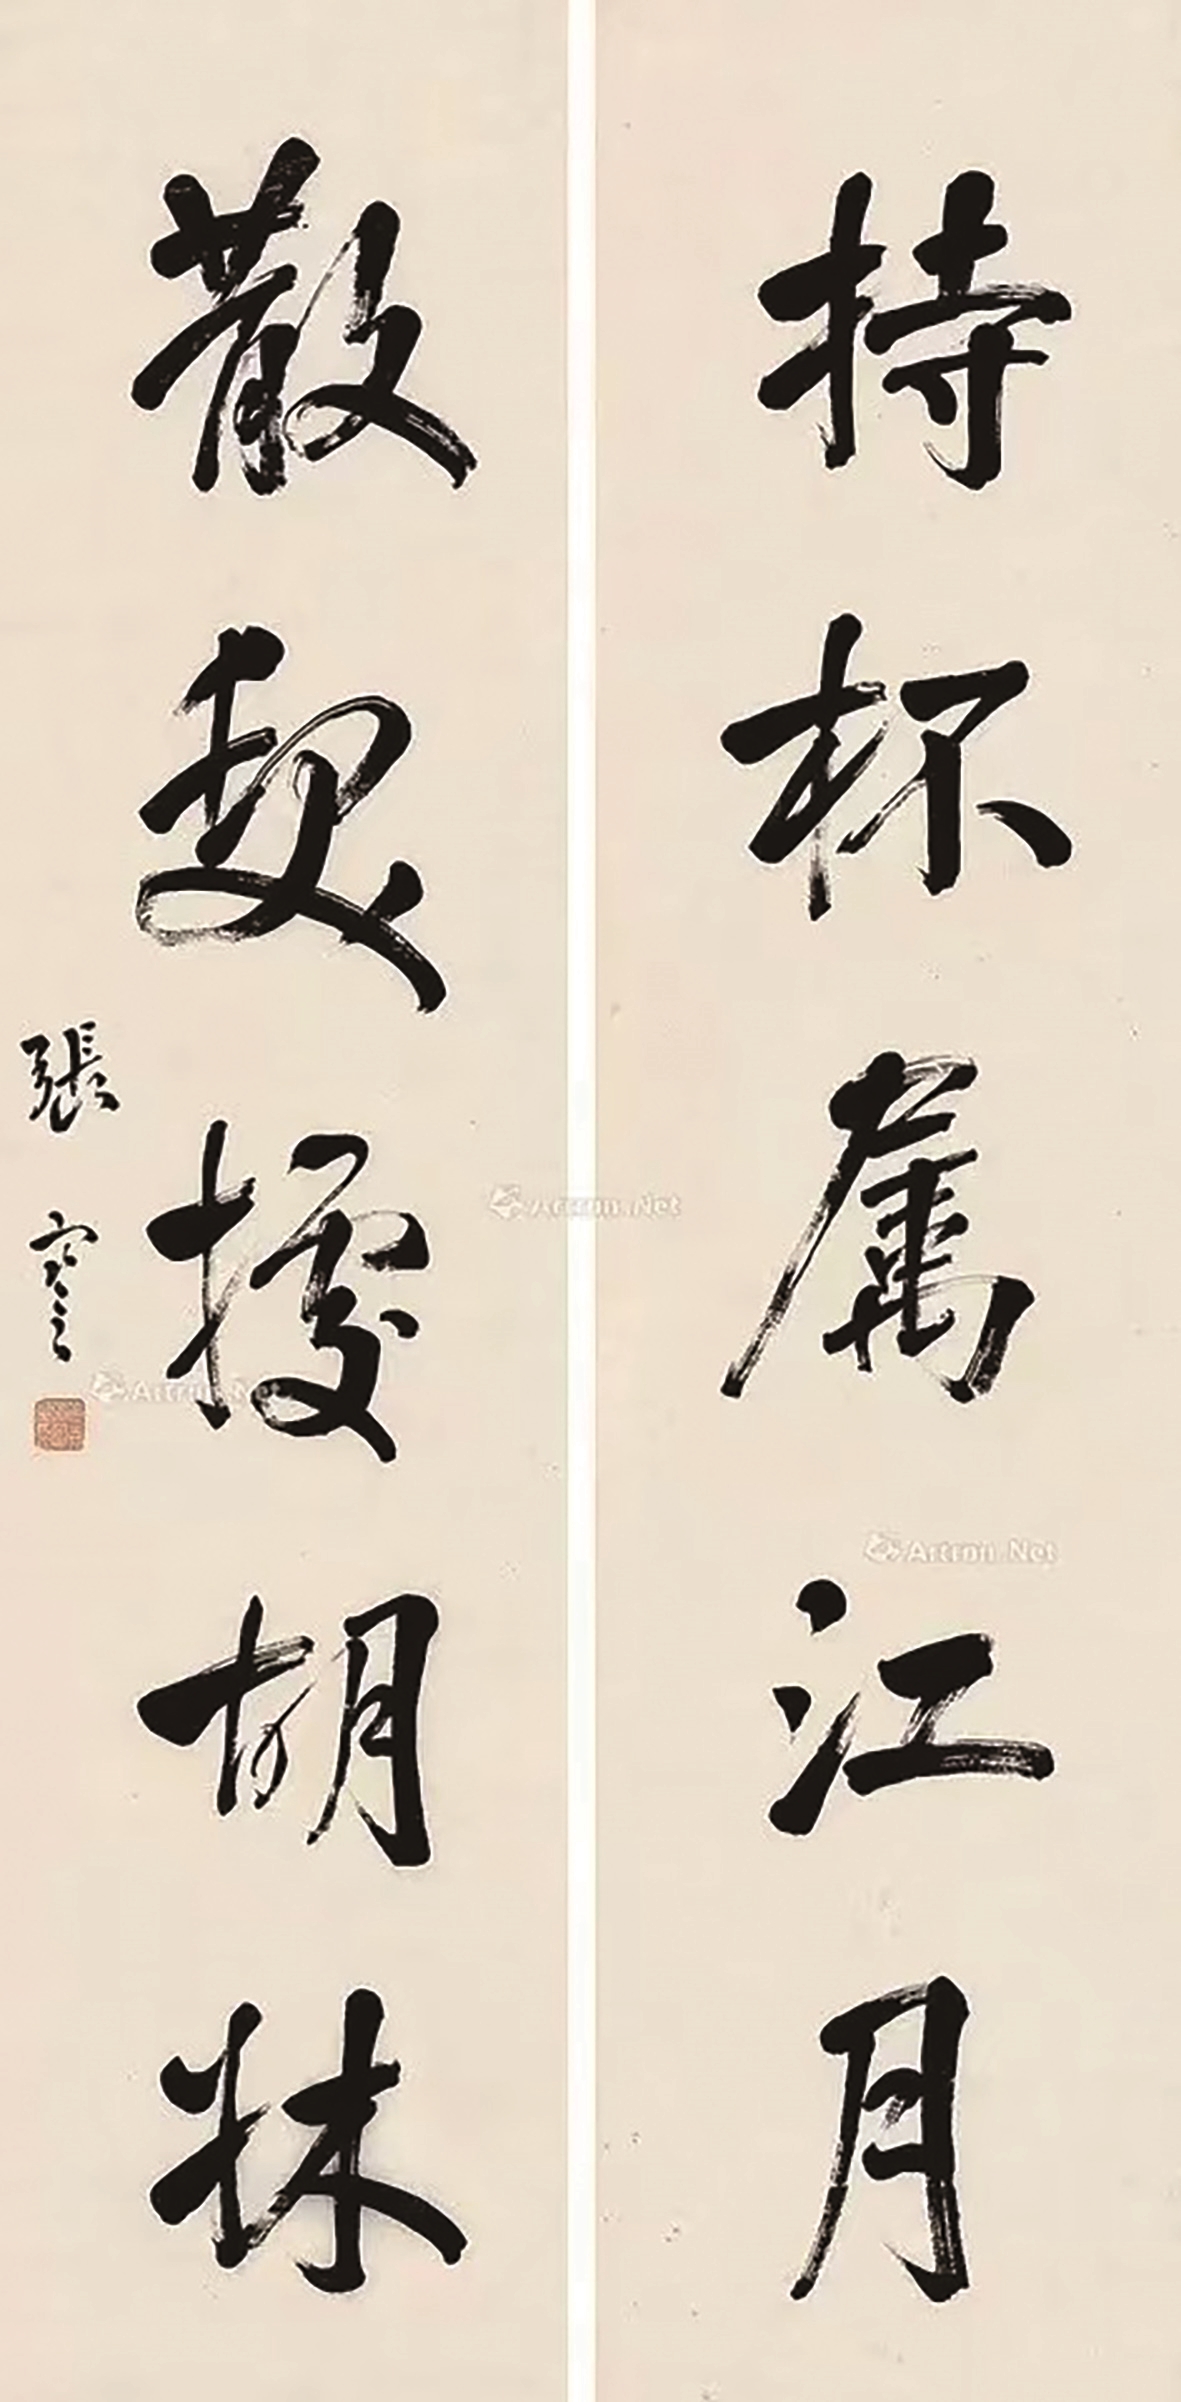 持杯属江月
散髮據胡牀
張寒
Artron.Net
Artron.Net
Artron.Net